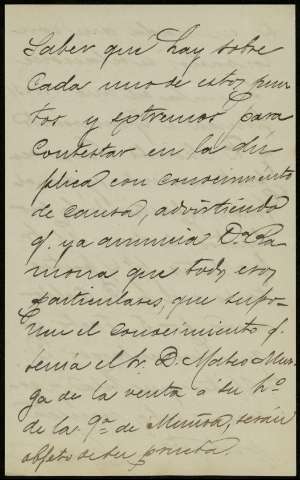 saber que hay sobre
cada uno de estos pun
tos y extremos para
contestar en la dú
plica con conocimiento
de causa, advirtiendo
q. ya anuncia Dª Ra
mona que todos esos
particulares, que supo-
nen el conocimiento q.
tenía el Sr. D. Mateo Mur
ga de la venta á su hº
de la qª de Muñoa, serán
objeto de su prueba.